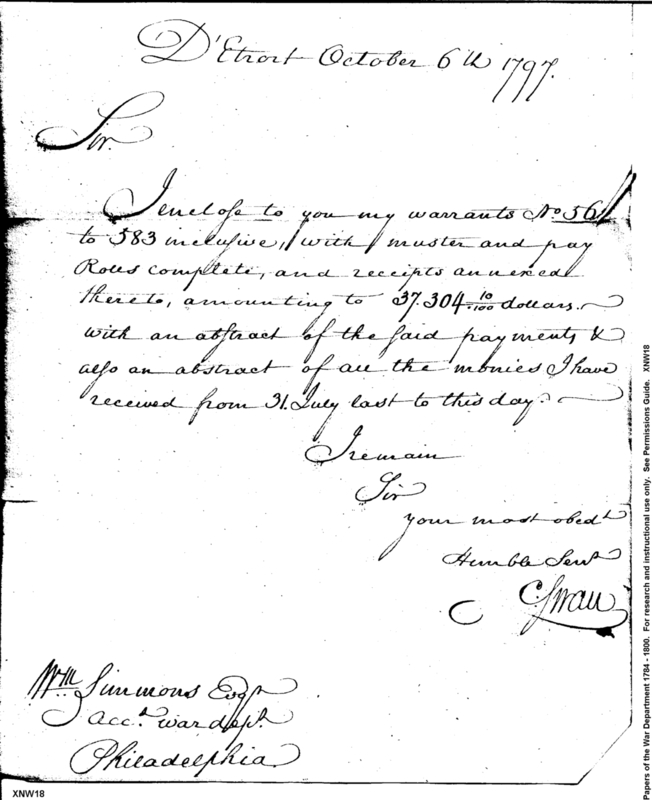 D'Etroit October 6th 1797.
Sir.
I enclose to you my warrants No 561
to 583 inclusive, with muster and pay
Roles complete, and receipts annexed
thereto, amounting to 37.304 10/100 dollars.
with an abstract of the said payments &
also an abstract of all the monies I have
received from 31. July last to this day.
I remain
Sir
your most obedt
Humble Servt
C. Swan
Wm Simmons Esqr
Acct. war dept.
Philadelphia
XNW18
Papers of the War Department 1784 - 1800. For research and instructional use only. See Permissions Guide. XNW18